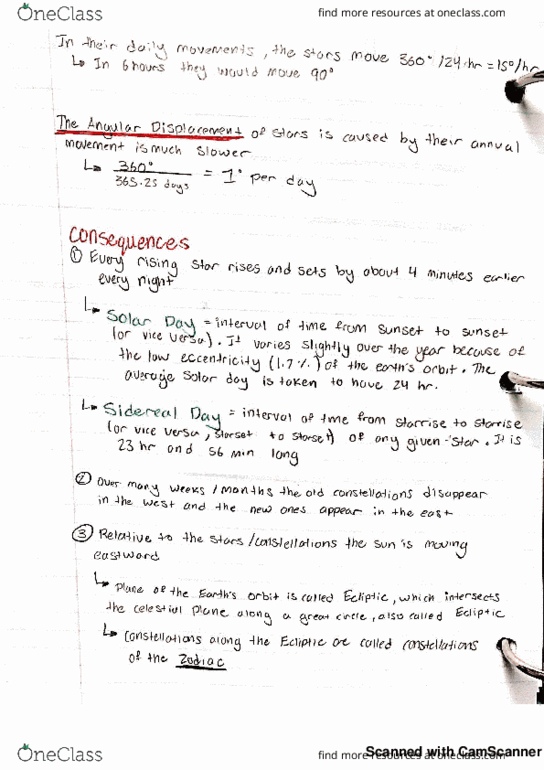 OneClass
find more resources at oneclass.com
In their daily movements, the stars move 360° /24·hr = 15°/hr
↳ In 6 hours they would move 90°
The Angular Displacement of stars is caused by their annual
movement is much slower
↳ 360° / 365.25 days = 1° per day
Consequences
① Every rising star rises and sets by about 4 minutes earlier
every night
↳ Solar Day = interval of time from sunset to sunset
(or vice versa). It varies slightly over the year because of
the low eccentricity (1.7%) of the earth's orbit. The
average solar day is taken to have 24 hr.
↳ Sidereal Day = interval of time from starrise to starrise
(or vice versa, starset to starset) of any given star. It is
23 hr and 56 min long
② Over many weeks/months the old constellations disappear
in the west and the new ones appear in the east
③ Relative to the stars/constellations the sun is moving
eastward
↳ Plane of the Earth's orbit is called Ecliptic, which intersects
the celestial plane along a great circle, also called Ecliptic
↳ Constellations along the Ecliptic are called constellations
of the Zodiac
OneClass
find more resources at oneclass.com
Scanned with CamScanner